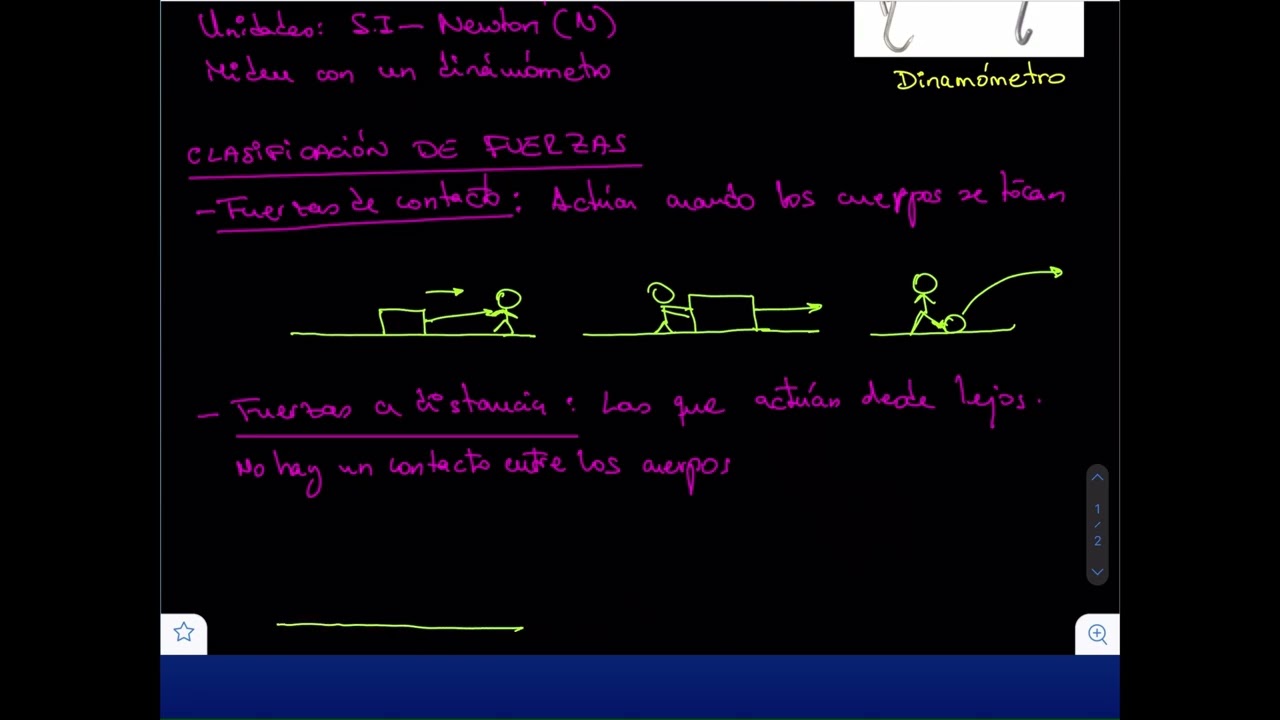 Unidades: S.I – Newton (N)
Miden con un dinámómetro
Dinamómetro
CLASIFICACIÓN DE FUERZAS
– Fuerzas de contacto: Actúan cuando los cuerpos se tocan
– Fuerzas a distancia: Las que actúan desde lejos.
No hay un contacto entre los cuerpos
1
/
2